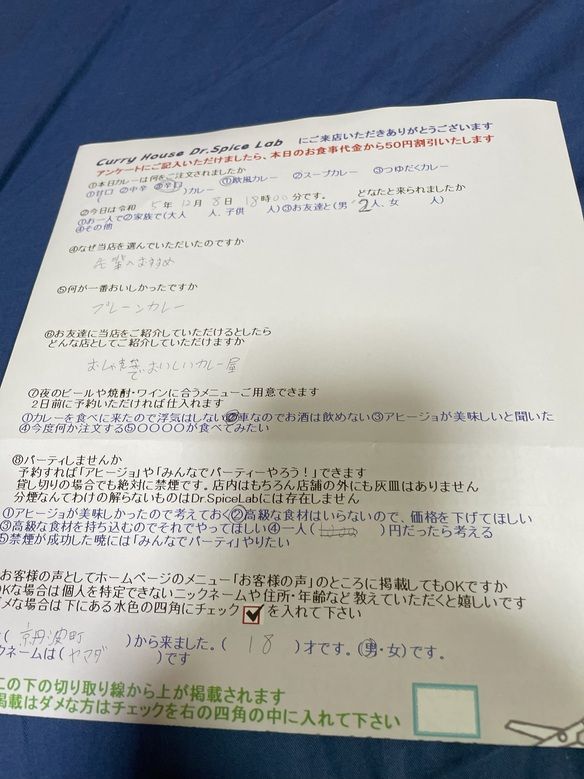 Curry House Dr.Spice Lab にご来店いただきありがとうございます
アンケートにご記入いただけましたら、本日のお食事代金から50円割引いたします
①本日カレーは何をご注文されましたか
①甘口 ②中辛 ③辛口 )カレー ①欧風カレー ②スープカレー ③つゆだくカレー
②今日は令和 5年 12月 8日 18時00分です。 どなたと来られましたか
①お一人で②ご家族で(大人 人、子供 人)③お友達と(男 2人、女 人)
④その他
④なぜ当店を選んでいただいたのですか
先輩のおすすめ
⑤何が一番おいしかったですか
プレーンカレー
⑥お友達に当店をご紹介していただけるとしたら
どんな店としてご紹介していただけますか
おしゃれでおいしいカレー屋
⑦夜のビールや焼酎・ワインに合うメニューご用意できます
2日前に予約いただければ仕入れます
①カレーを食べに来たので浮気はしない②車なのでお酒は飲めない③アヒージョが美味しいと聞いた
④今度何か注文する⑤〇〇〇〇が食べてみたい
⑧パーティしませんか
予約すれば「アヒージョ」や「みんなでパーティーやろう!」できます
貸し切りの場合でも絶対に禁煙です。店内はもちろん店舗の外にも灰皿はありません
分煙なんてわけの解らないものはDr.SpiceLabには存在しません
①アヒージョが美味しかったので考えておく②高級な食材はいらないので、価格を下げてほしい
③高級な食材を持ち込むのでそれでやってほしい④一人( )円だったら考える
⑤禁煙が成功した暁には「みんなでパーティ」やりたい
お客様の声としてホームページのメニュー「お客様の声」のところに掲載してもOKですか
OKな場合は個人を特定できないニックネームや住所・年齢など教えていただくと嬉しいです
ダメな場合は下にある水色の四角にチェック を入れて下さい
( 京丹波町 )から来ました。( 18 )才です。(男・女)です。
クネームは(ヤマダ )です
この下の切り取り線から上が掲載されます
掲載はダメな方はチェックを右の四角の中に入れて下さい